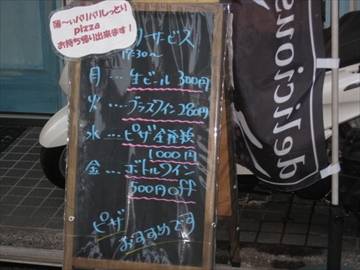 薄〜いパリパリしっとり
pizza
お持ち帰り出来ます!
サービス
17:30〜
月…生ビール 300円
火…グラスワイン 280円
水…ピザ全種類
1000円
金…ボトルワイン
500円OFF
ピザ
おすすめです
delicious